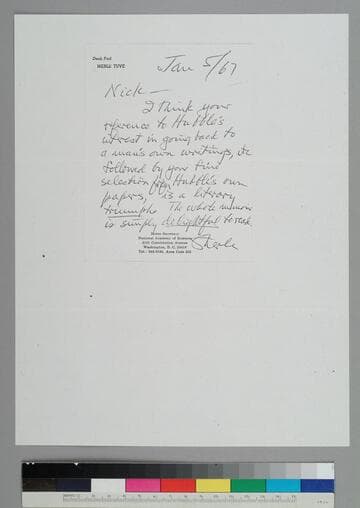 Desk Pad
MERLE TUVE
Jan 5/67
Nick —
I think your
reference to Hubble's
interest in going back to
a man's own writings, etc
followed by your fine
selection from Hubble's own
papers, is a literary
triumph. The whole memoir
is simply delightful to read.
Merle
Home Secretary
National Academy of Sciences
2101 Constitution Avenue
Washington, D. C. 20418
Area Code 202